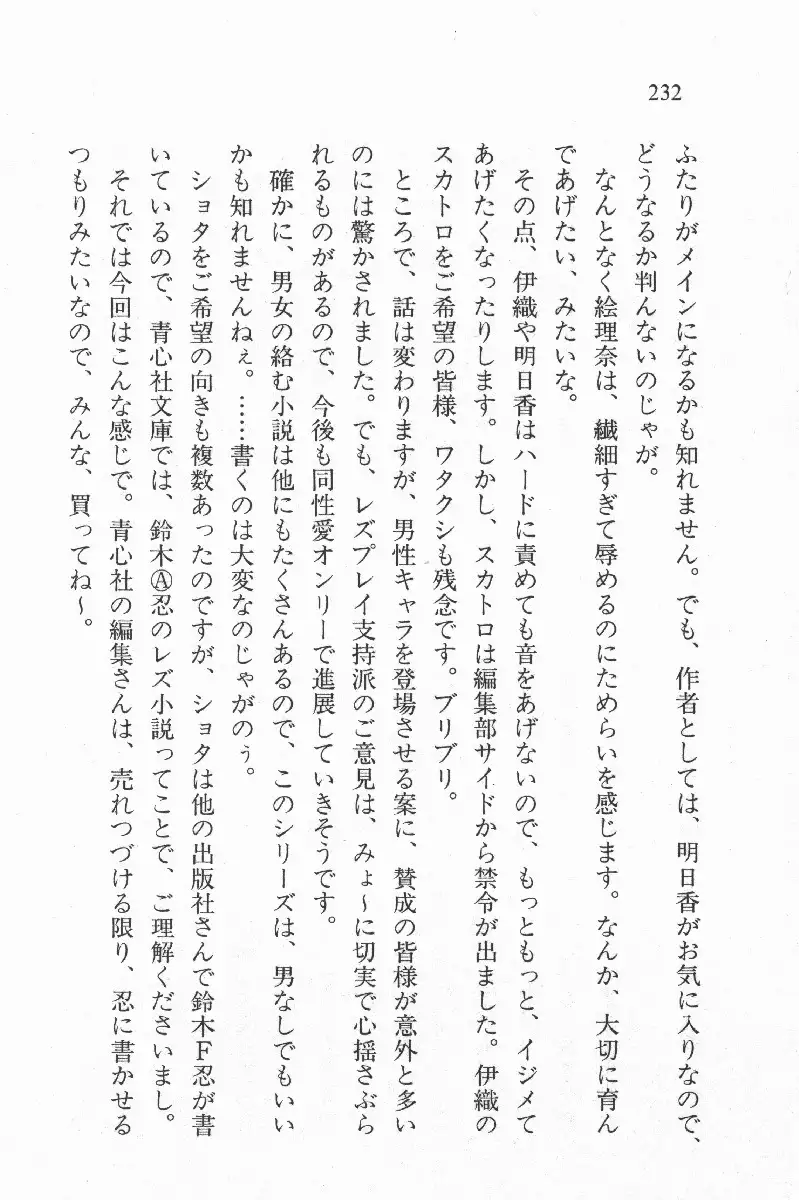 232
ふたりがメインになるかも知れません。でも、作者としては、明日香がお気に入りなので、
どうなるか判んないのじゃが。
なんとなく絵理奈は、繊細すぎて辱めるのにためらいを感じます。なんか、大切に育ん
であげたい、みたいな。
その点、伊織や明日香はハードに責めても音をあげないので、もっともっと、イジメて
あげたくなったりします。しかし、スカトロは編集部サイドから禁令が出ました。伊織の
スカトロをご希望の皆様、ワタクシも残念です。ブリブリ。
ところで、話は変わりますが、男性キャラを登場させる案に、賛成の皆様が意外と多い
のには驚かされました。でも、レズプレイ支持派のご意見は、みょ～に切実で心揺さぶら
れるものがあるので、今後も同性愛オンリーで進展していきそうです。
確かに、男女の絡む小説は他にもたくさんあるので、このシリーズは、男なしでもいい
かも知れませんねぇ。……書くのは大変なのじゃがのぅ。
ショタをご希望の向きも複数あったのですが、ショタは他の出版社さんで鈴木Ｆ忍が書
いているので、青心社文庫では、鈴木Ⓐ忍のレズ小説ってことで、ご理解くださいまし。
それでは今回はこんな感じで。青心社の編集さんは、売れつづける限り、忍に書かせる
つもりみたいなので、みんな、買ってね～。